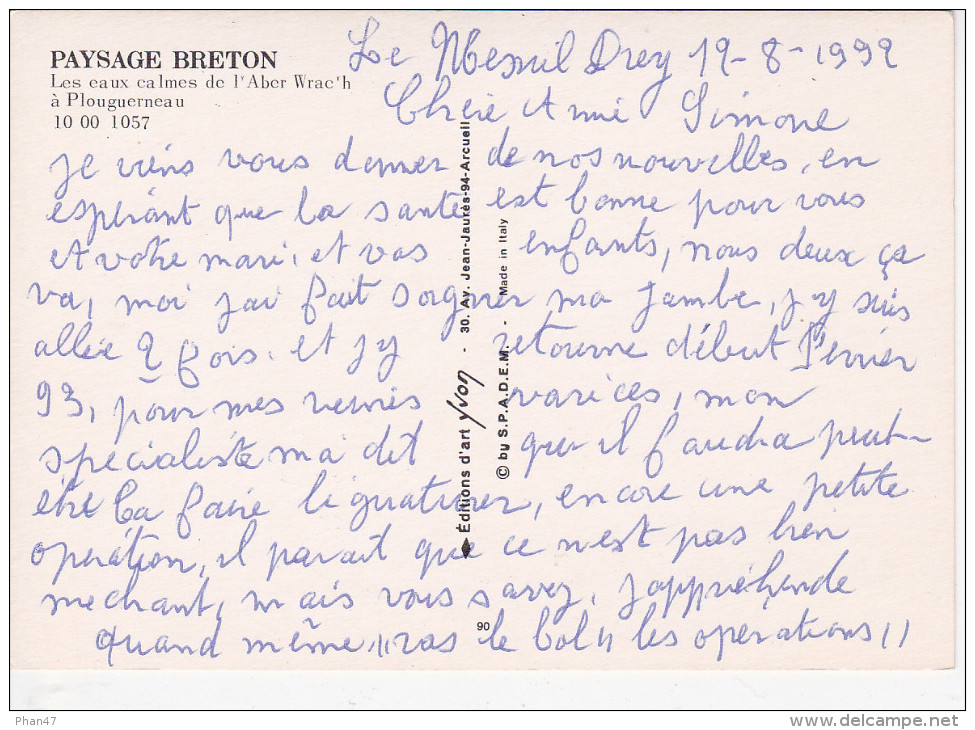 PAYSAGE BRETON
Les eaux calmes de l'Aber Wrac'h
à Plouguerneau
10 00 1057
Le Mesnil Drey 19-8-1992
Chère Amie Simone
je viens vous donner de nos nouvelles, en
espérant que la santé est bonne pour vous
et votre mari, et vos enfants, nous deux ça
va, moi j'ai fait soigner ma jambe, j'y suis
allée 2 fois. et j'y retourne début Fevrier
93, pour mes veines varices, mon
spécialiste ma dit qu'il faudra peut-
être la faire ligaturer, encore une petite
opération, il parait que ce n'est pas bien
mechant, mais vous savez, j'appréhende
quand même, "ras le bol" les operations !!
Éditions d'art yvon - 30, Av. Jean-Jaurès-94-Arcueil
© by S.P.A.D.E.M. - Made in Italy
90
Phan47
www.delcampe.net